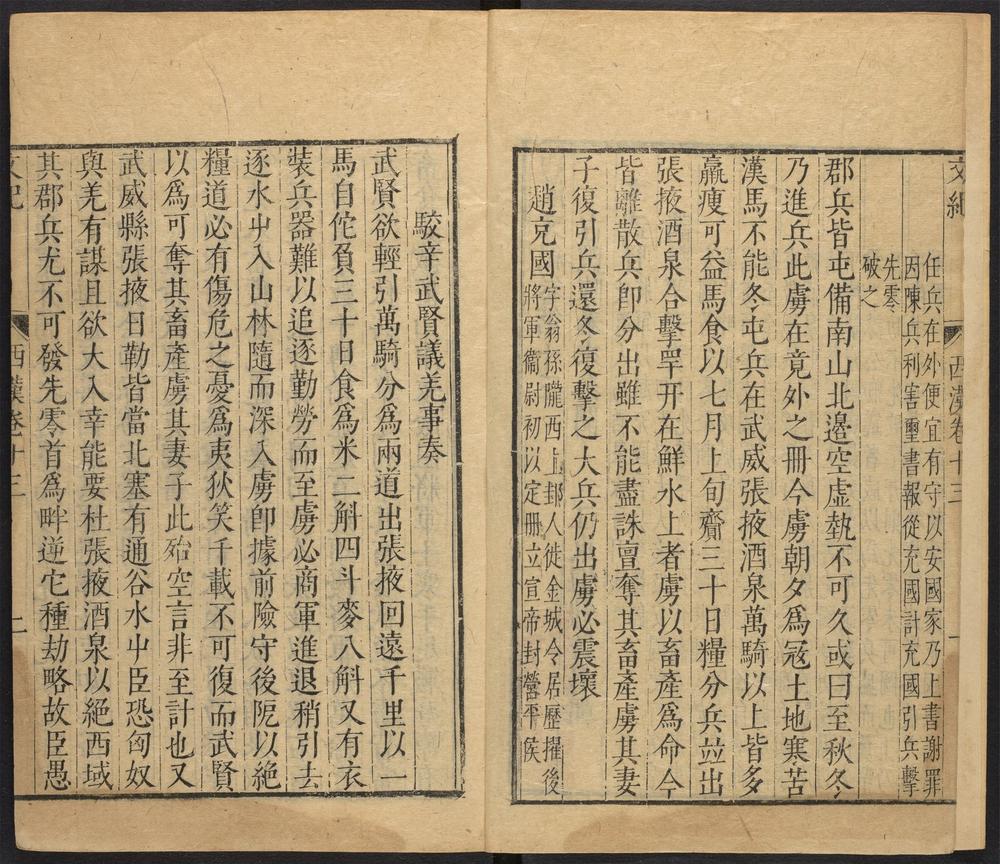 文紀
西漢卷十三
一
任兵在外便宜有守以安國家乃上書謝罪
因陳兵利害璽書報從充國計充國引兵擊
先零
破之
郡兵皆屯備南山北邊空虛埶不可久或曰至秋冬
乃進兵此虜在竟外之冊今虜朝夕爲冦土地寒苦
漢馬不能冬屯兵在武威張掖酒泉萬騎以上皆多
羸瘦可益馬食以七月上旬齎三十日糧分兵竝出
張掖酒泉合擊䍐幵在鮮水上者虜以畜產爲命今
皆離散兵卽分出雖不能盡誅亶奪其畜產虜其妻
子復引兵還冬復擊之大兵仍出虜必震壞
趙充國
字翁孫隴西上邽人徙金城令居歷擢後
將軍衞尉初以定冊立宣帝封營平侯
駮辛武賢議羌事奏
武賢欲輕引萬騎分爲兩道出張掖回遠千里以一
馬自佗負三十日食爲米二斛四斗麥八斛又有衣
裝兵器難以追逐勤勞而至虜必商軍進退稍引去
逐水屮入山林隨而深入虜卽據前險守後阸以絕
糧道必有傷危之憂爲夷狄笑千載不可復而武賢
以爲可奪其畜產虜其妻子此殆空言非至計也又
武威縣張掖日勒皆當北塞有通谷水屮臣恐匈奴
與羌有謀且欲大入幸能要杜張掖酒泉以絕西域
其郡兵尤不可發先零首爲畔逆它種劫略故臣愚
文紀
西漢卷十三
二